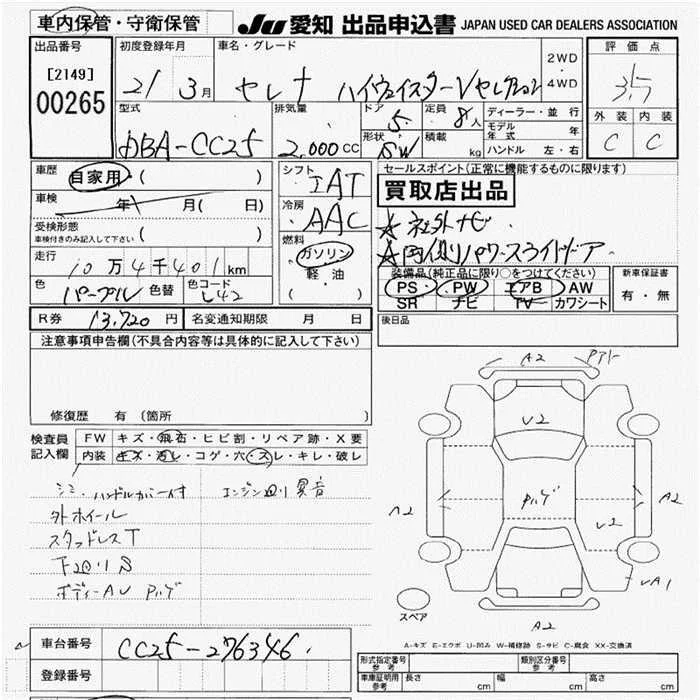 車内保管・守衛保管
JU 愛知 出品申込書 JAPAN USED CAR DEALERS ASSOCIATION
出品番号
[2149]
00265
初度登録年月
21年 3月
車名・グレード
セレナ ハイウェイスターVセレクション
2WD
・
4WD
評価点
3.5
外装 内装
C C
型式
DBA-CC25
排気量
2.000cc
ドア 5
形状 SW
定員 8人
積載 kg
ディーラー・並行
モデル年式 年
ハンドル 左・右
車歴 自家用 ( )
車検 年 月( 日)
受検形態
車検付きのみ記入して下さい ( )
走行
10万4千401km
色 パープル 色替
色コード L42
シフト IAT
冷房 AAC
燃料
ガソリン
軽・油
( )
セールスポイント(正常に機能するものに限ります)
買取店出品
☆社外ナビ
☆両側パワースライドドア
装備品(純正品に限り○をつけてください)
PS・PW エアB AW
SR ナビ TV カワシート
新車保証書
有・無
R券 13,720円 名変通知期限 月 日
後日品
注意事項申告欄(不具合内容等は具体的に記入して下さい)
修復歴 有(箇所 )
検査員記入欄
FW キズ・飛石・ヒビ割・リペア跡・X要
内装 キズ・汚レ・コゲ・穴・スレ・キレ・破レ
シミ・ハンドルカバー付 エンジン廻り異音
外ホイール
スタッドレスT
下廻りS
ボディーAU
A2
V2
A2
A2
A2
スペア
A-キズ E-エクボ U-凹み W-補修跡 S-サビ C-腐食 XX-交換済
車台番号 CC25-276346
登録番号
形式指定番号 参考
類別区分番号 参考
車庫証明用 参考 長さ cm 幅 cm 高さ cm